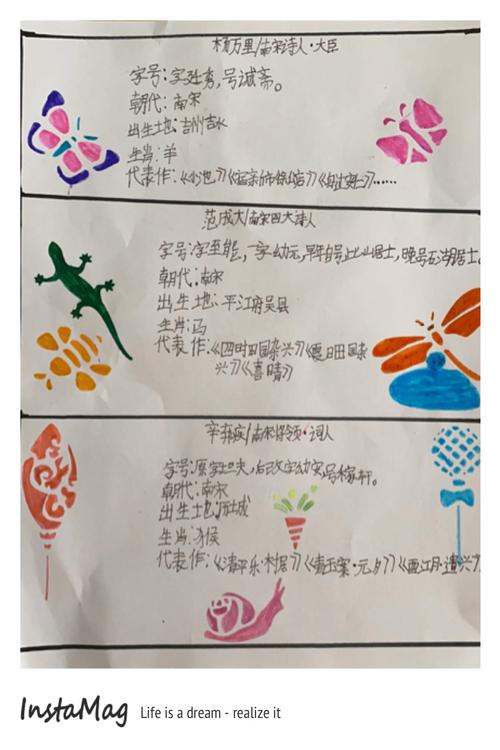 杨万里/南宋诗人·大臣
字号:字廷秀,号诚斋。
朝代:南宋
出生地:吉州吉水
生肖:羊
代表作:《小池》《宿新市徐公店》《舟过安仁》……
范成大/南宋四大诗人
字号:字至能,一字幼元,早年自号此山居士,晚号石湖居士。
朝代:南宋
出生地:平江府吴县
生肖:马
代表作:《四时田园杂兴》《夏日田园杂
兴》《喜晴》
辛弃疾/南宋将领·词人
字号:原字坦夫,后改字幼安,号稼轩。
朝代:南宋
出生地:历城
生肖:猴
代表作:《清平乐·村居》《青玉案·元夕》《西江月·遣兴》
InstaMag Life is a dream - realize it